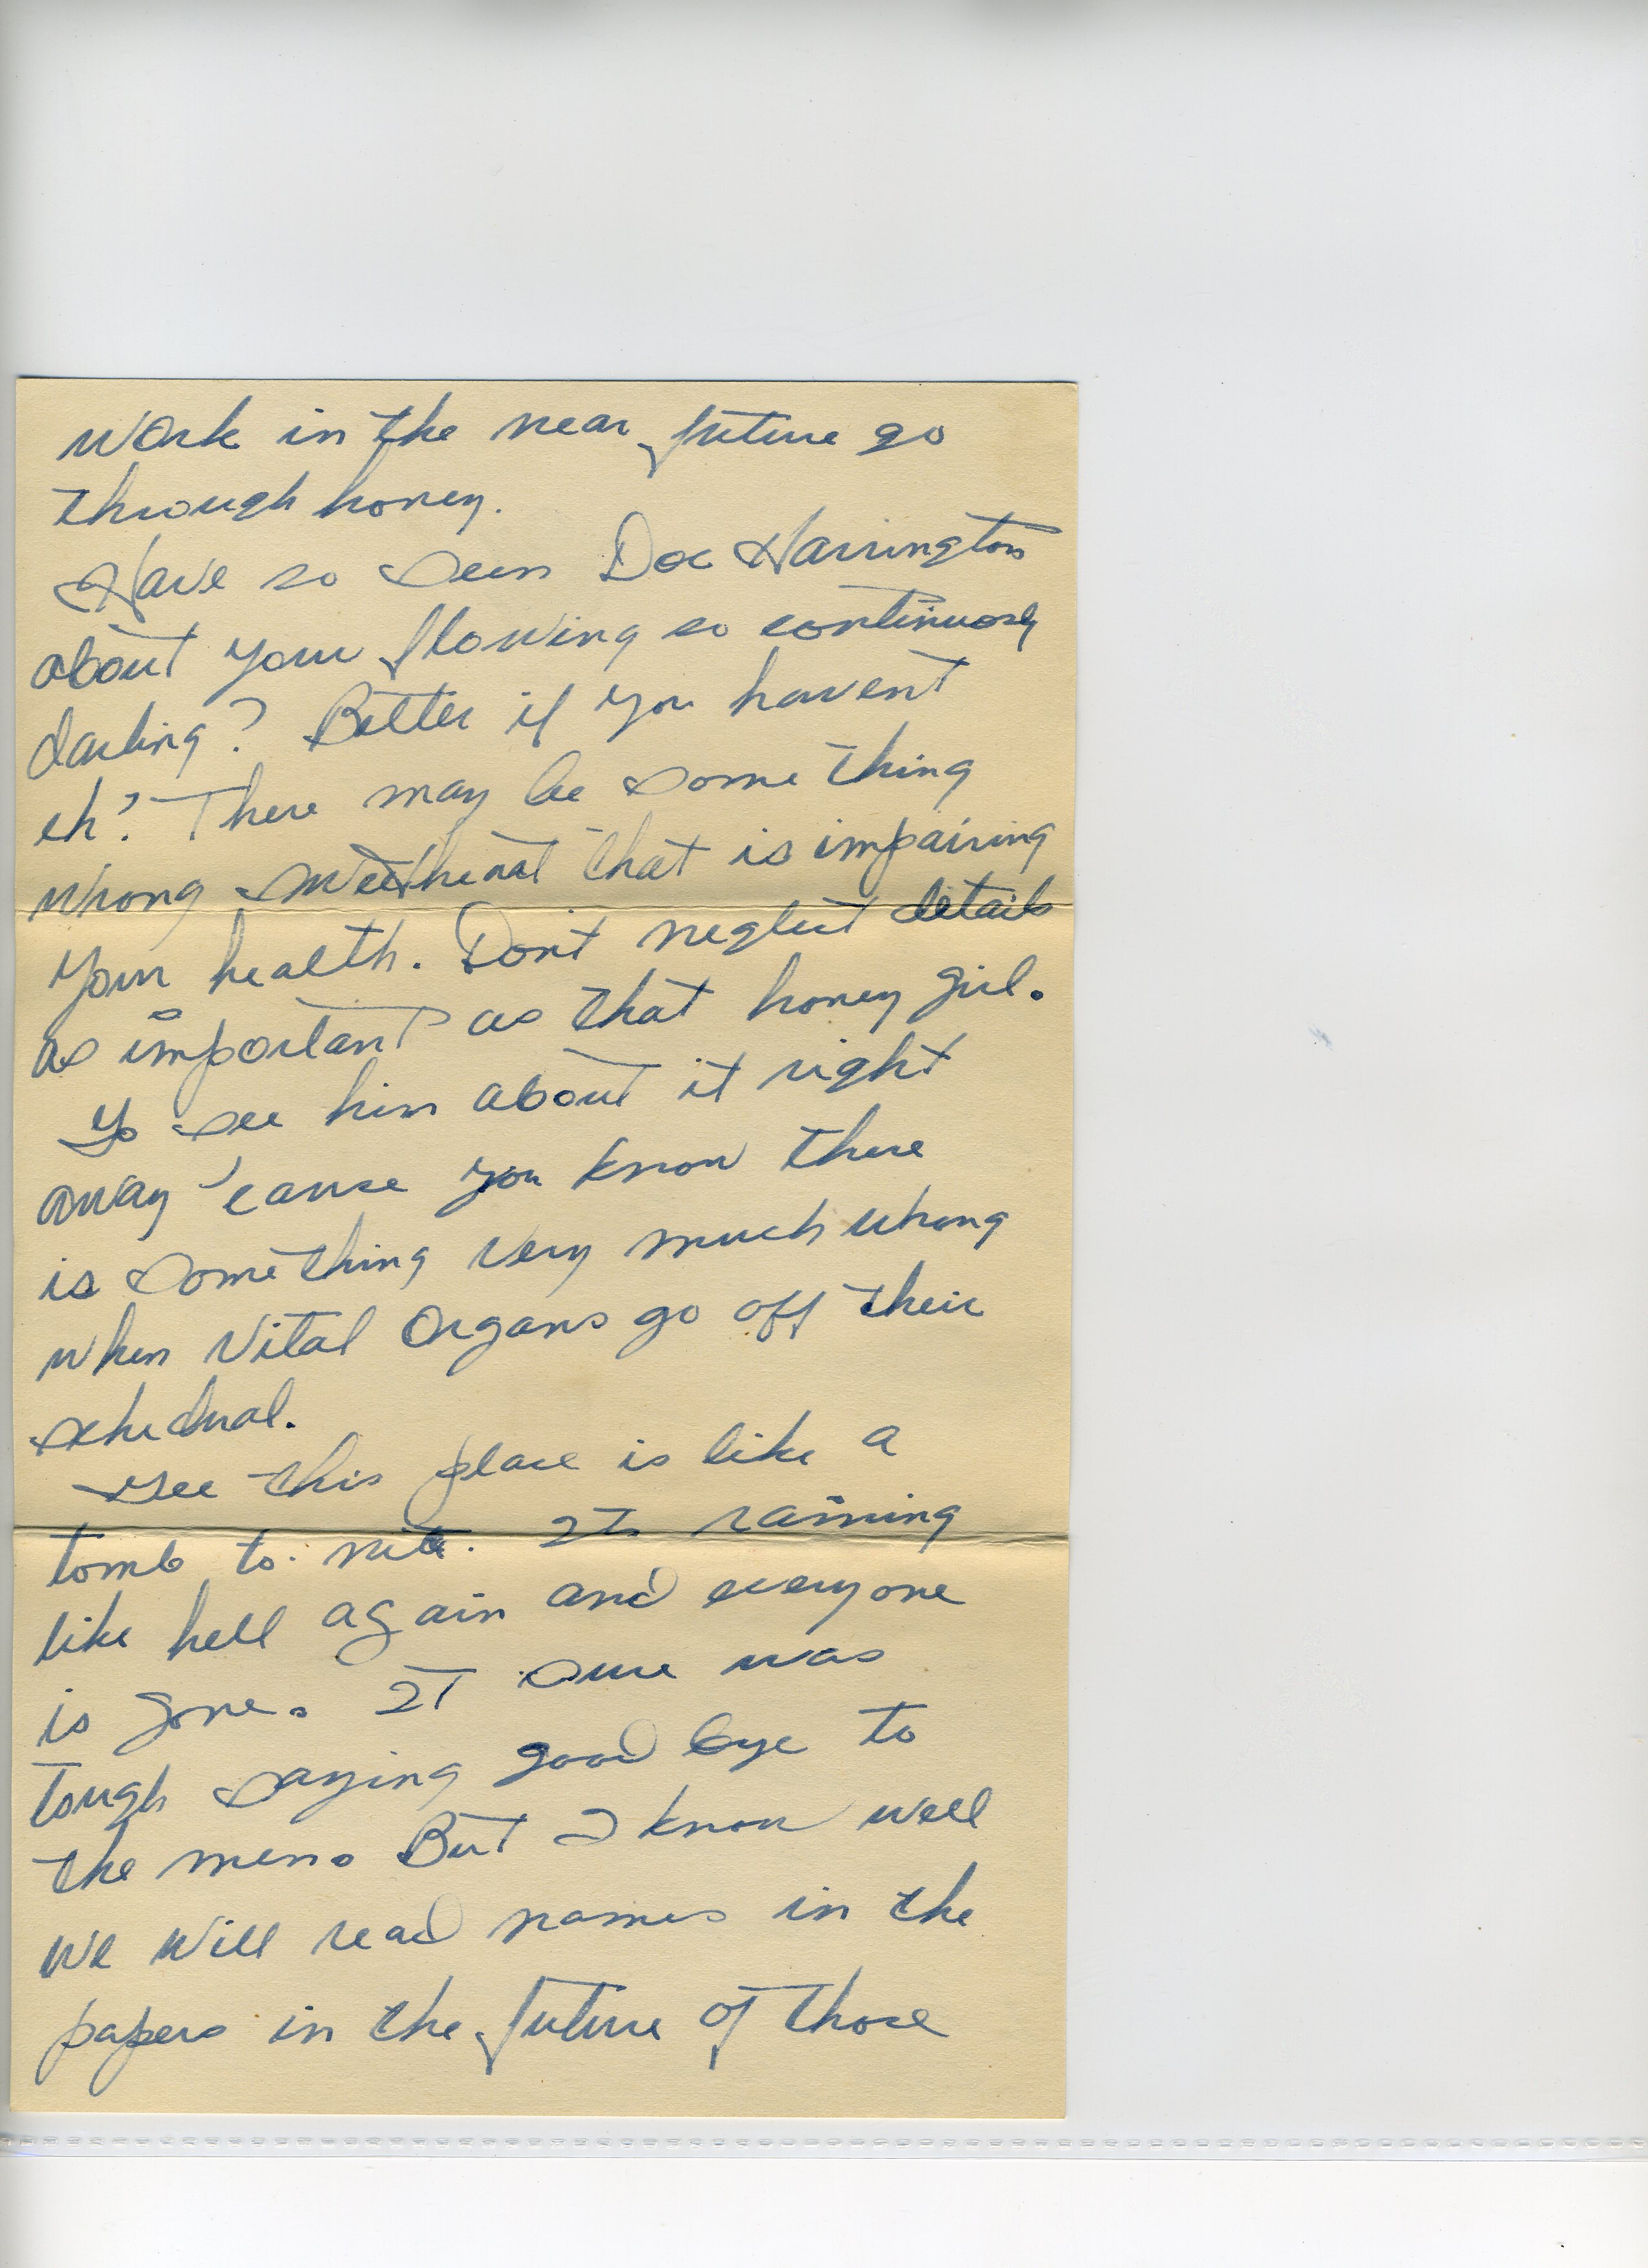 work in the near future go
through honey.
Have so seen Doc Harrington
about your flowing so continuosly
darling? Better if you havent
eh? There may be some thing
wrong sweetheart that is impairing
your health. Dont neglect details
as important as that honey girl.
Go see him about it right
away 'cause you know there
is something very much wrong
when Vital Organs go off their
schedual.
Gee this place is like a
tomb to nite. Its raining
like hell again and everyone
is gone. It sure was
tough saying good bye to
the men. But I know well
we will read names in the
papers in the future of those